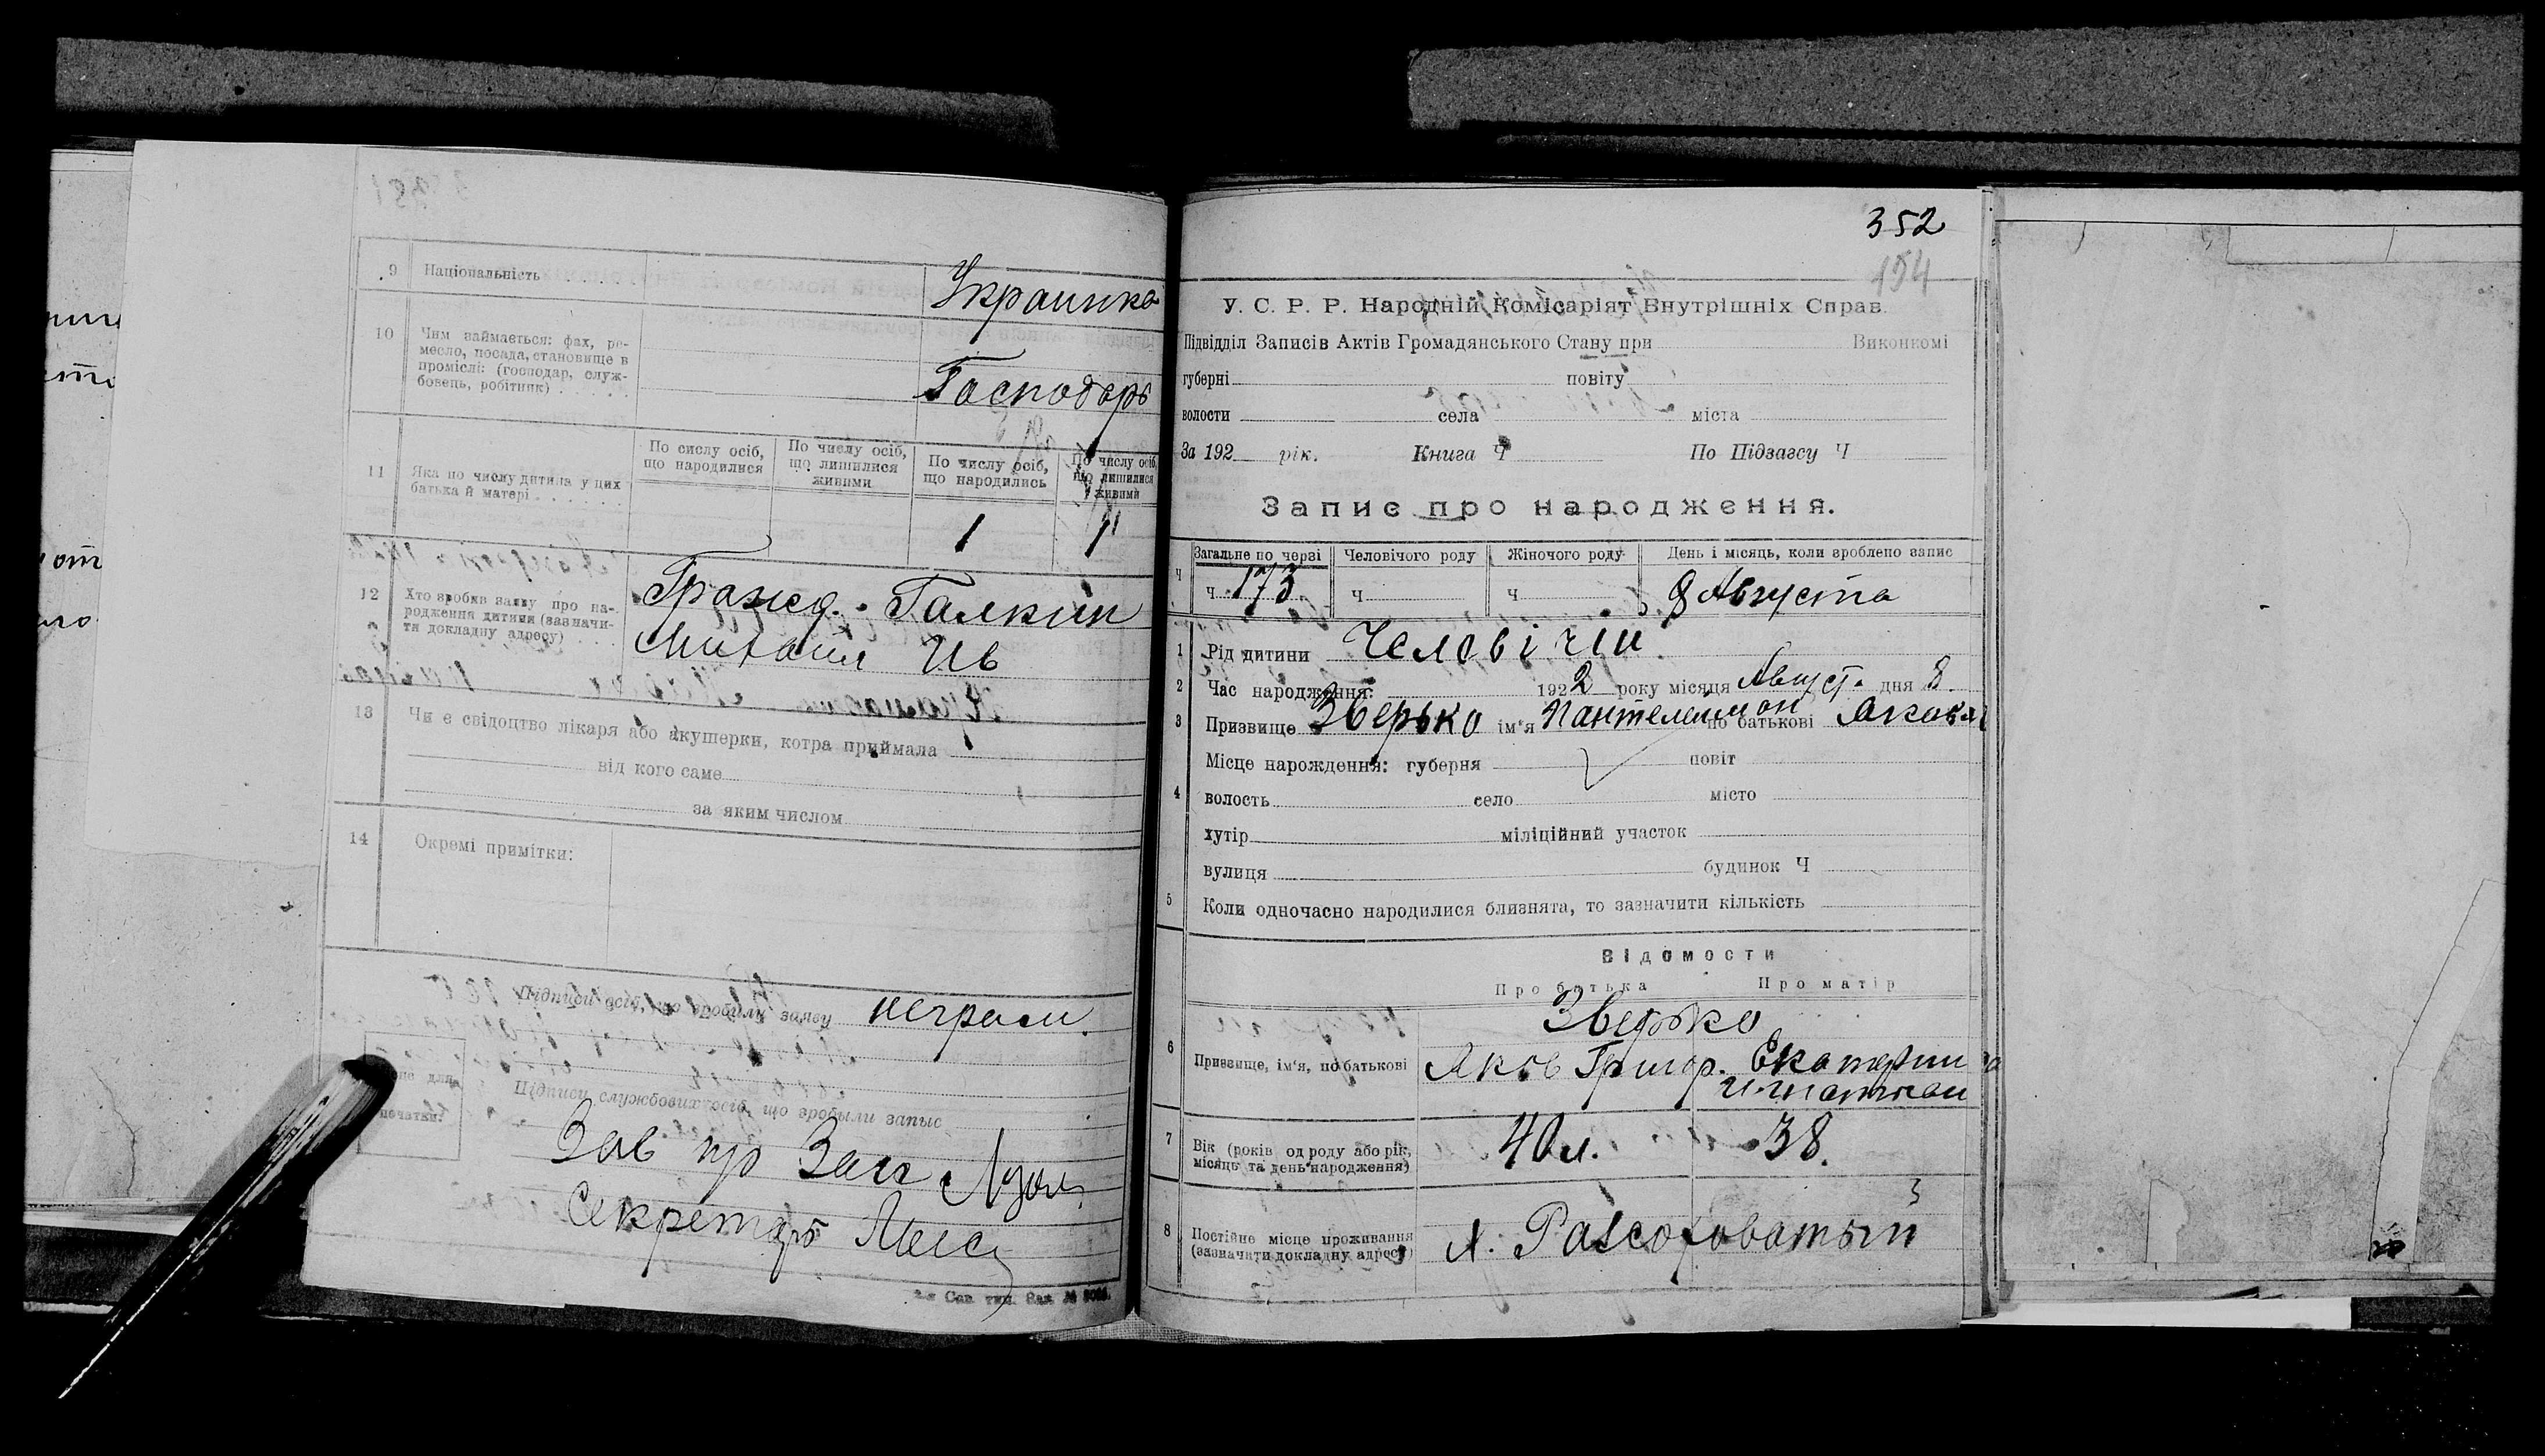 9 Національність Украинка
10 Чим займається: фах, ре-
месло, посада, становище в
проміслі: (господар, служ-
бовець, робітник) Господарь
11 Яка по числу дитина у цих
батька й матері
По сислу осіб,
що народилися
По числу осіб,
що лишилися
живими
По числу осіб,
що народились
По числу осіб,
що лишилися
живими
1 1
12 Хто зробив заяву про на-
родження дитини (зазначи-
ти докладну адресу)
Гражд. Галкин
Михаил Ив
13 Чи є свідоцтво лікаря або акушерки, котра приймала
від кого саме
за яким числом
14 Окремі примітки:
Підписи осіб, що зробили заяву неграм.
Підписи службових осіб, що зробыли запыс
печатки.
Зав пр Загс
Секретарь
352
154
У. С. Р. Р. Народній Комісаріят Внутрішніх Справ.
Підвідділ Записів Актів Громадянського Стану при Виконкомі
губерні повіту
волости села міста
За 192 рік. Книга Ч По Підзагсу Ч
Запис про народження.
Загальне по черзі Человічого роду Жіночого роду День і місяць, коли зроблено запис
ч
ч 173 ч ч 8 Августа
1 Рід дитини Человічій
2 Час народження: 1922 року місяця Август. дня 8
3 Призвище Зверько ім'я Пантелеимон по батькові
Місце нарождення: губерня повіт
4 волость село місто
хутір міліційний участок
вулиця будинок Ч
5 Коли одночасно народилися близнята, то зазначити кількість
Відомости
Про батька Про матір
Зверько
6 Призвище, ім'я, по батькові Яков Григор. Екатерина
7 Вік (років од роду або рік,
місяць та день народження) 40 л. 38.
8 Постійне місце проживання
(зазначити докладну адресу) х. Рассоховатый